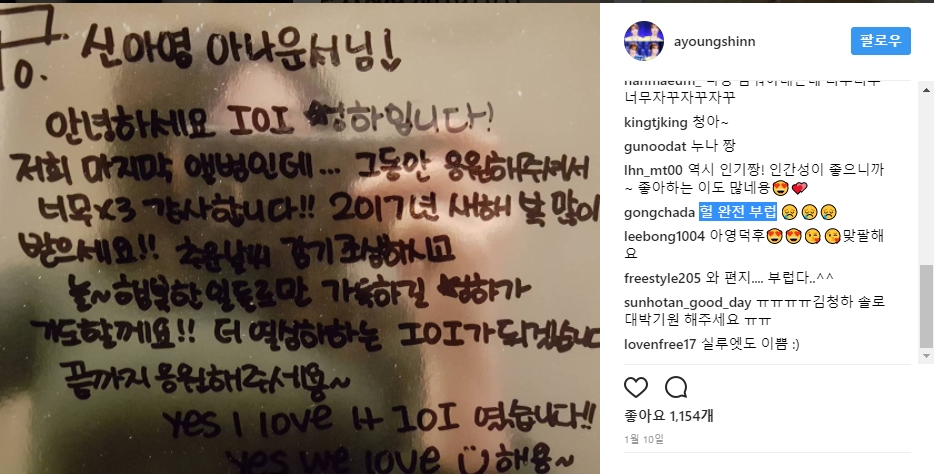 To. 신아영 아나운서님!
안녕하세요 IOI 청하입니다!
저희 마지막 앨범인데... 그동안 응원해주셔서
너무x3 감사합니다!! 2017년 새해 복 많이
받으세요!! 추운날씨 감기 조심하시고
늘~행복한 일들로만 가득하길 청하가
기도할께요!! 더 열심히하는 IOI가 되겠습니
끝까지 응원해주세용~
yes I love it IOI 였습니다!!
yes we love 해용~
ayoungshinn
팔로우
너무자꾸자꾸자꾸
kingtjking 청아~
gunoodat 누나 짱
lhn_mt00 역시 인기짱! 인간성이 좋으니까
~ 좋아하는 이도 많네용😍💕
gongchada 헐 완전 부럽 😢😢😢
leebong1004 아영덕후😍😍😘😘맞팔해
요
freestyle205 와 편지.... 부럽다..^^
sunhotan_good_day ㅠㅠㅠㅠ김청하 솔로
대박기원 해주세요 ㅠㅠ
lovenfree17 실루엣도 이쁨 :)
좋아요 1,154개
1월 10일